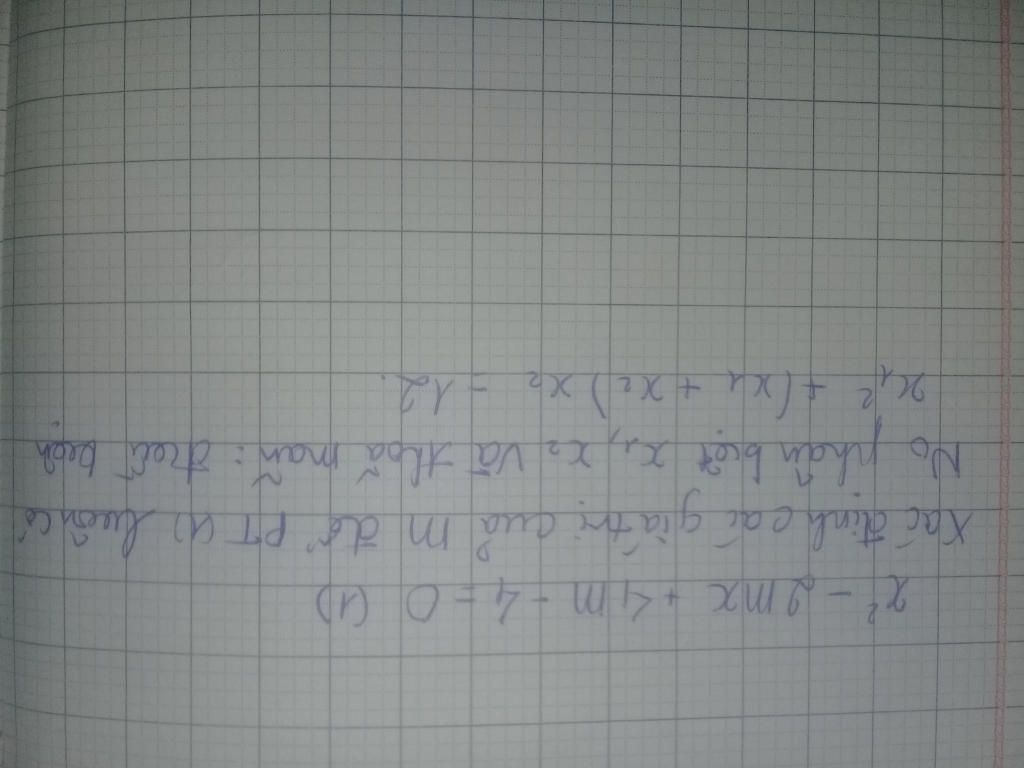 x² - 2mx + 4m - 4 = 0 (1)
Xác định các giá trị của m để PT (1) luôn có
No phân biệt x₁, x₂ và thoả mãn: điều kiện
x₁² + (x₁ + x₂) x₂ = 12.